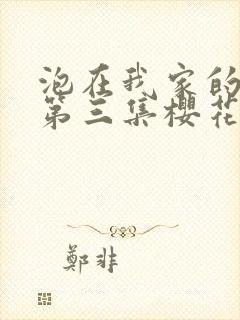 泡在我家的
第三集櫻花
鄭非